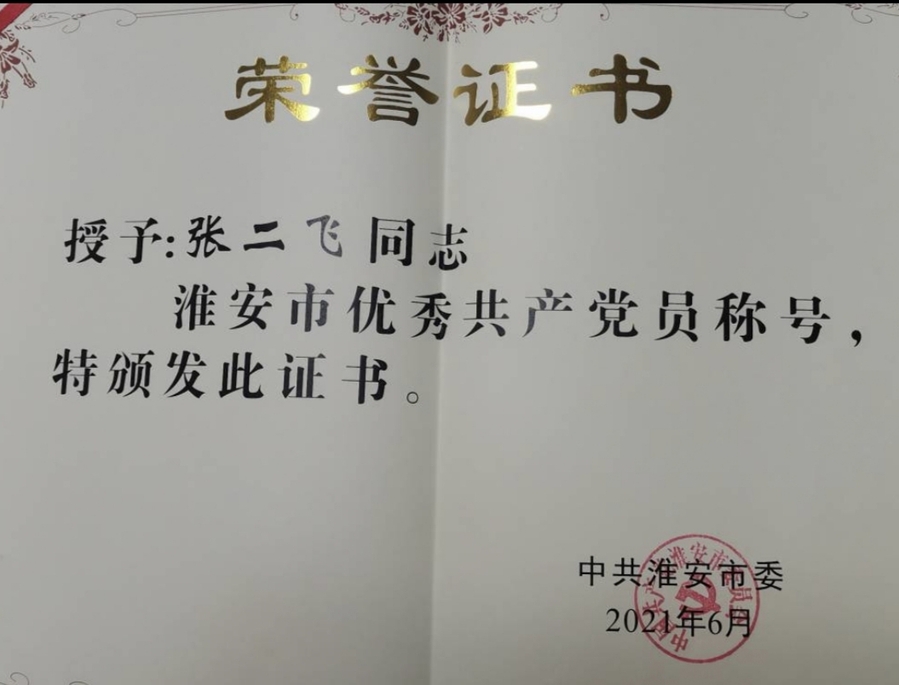 荣誉证书
授予:张二飞同志
淮安市优秀共产党员称号,
特颁发此证书。
中共淮安市委
2021年6月